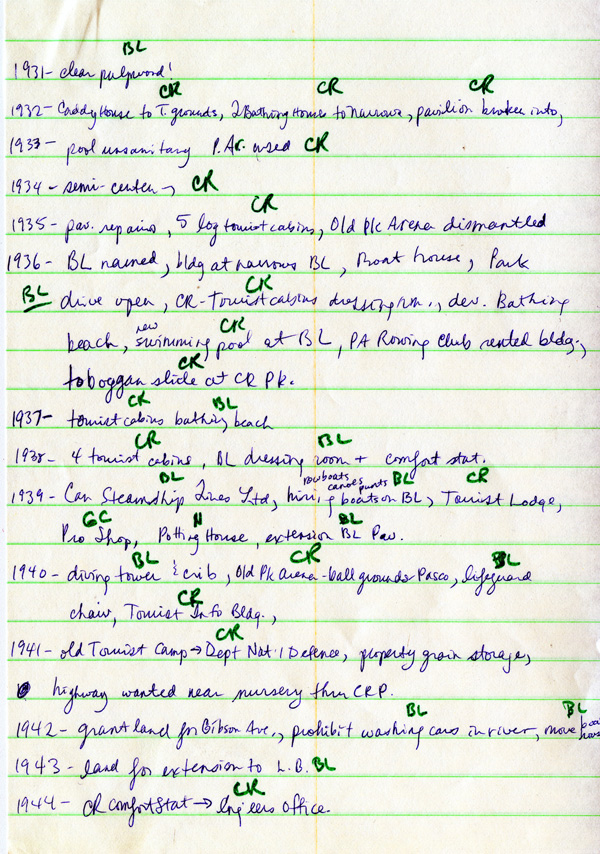 BL
1931 - clear pulpwood!
CR CR CR
1932 - Caddy House to T. grounds, 2 Bathing House to narrows, pavilion broken into,
1933 - pool unsanitary P. Ar. used CR
1934 - semi-centen → CR
CR
1935 - pav. repairs, 5 log tourist cabins, Old Pk Arena dismantled
1936 - BL named, bldg at narrows BL, Boat house, Park
BL drive open, CR - Tourist cabins dressing rm., dev. Bathing
CR
beach, new swimming pool at BL, PA Rowing Club rented bldg.,
CR
toboggan slide at CR Pk.
CR
CR BL
1937 - tourist cabins bathing beach
CR BL
1938 - 4 tourist cabins, BL dressing room + comfort stat.
BL rowboats canoes punts BL CR
1939 - Can Steamship Lines Ltd, hiring boats on BL, Tourist Lodge,
GC N BL
Pro Shop, Potting House, extension BL Pav.
BL CR BL
1940 - diving tower & crib, Old Pk Arena - ball grounds Pasco, lifeguard
CR
chair, Tourist Info Bldg.,
CR
1941 - old Tourist Camp → Dept Nat'l Defence, property grain storage,
highway wanted near nursery thru CRP.
BL BL
1942 - grant land for Gibson Ave., prohibit washing cars in river, move boat house
1943 - land for extension to L.B. BL
CR
1944 - CR comfort Stat → Engineers office.